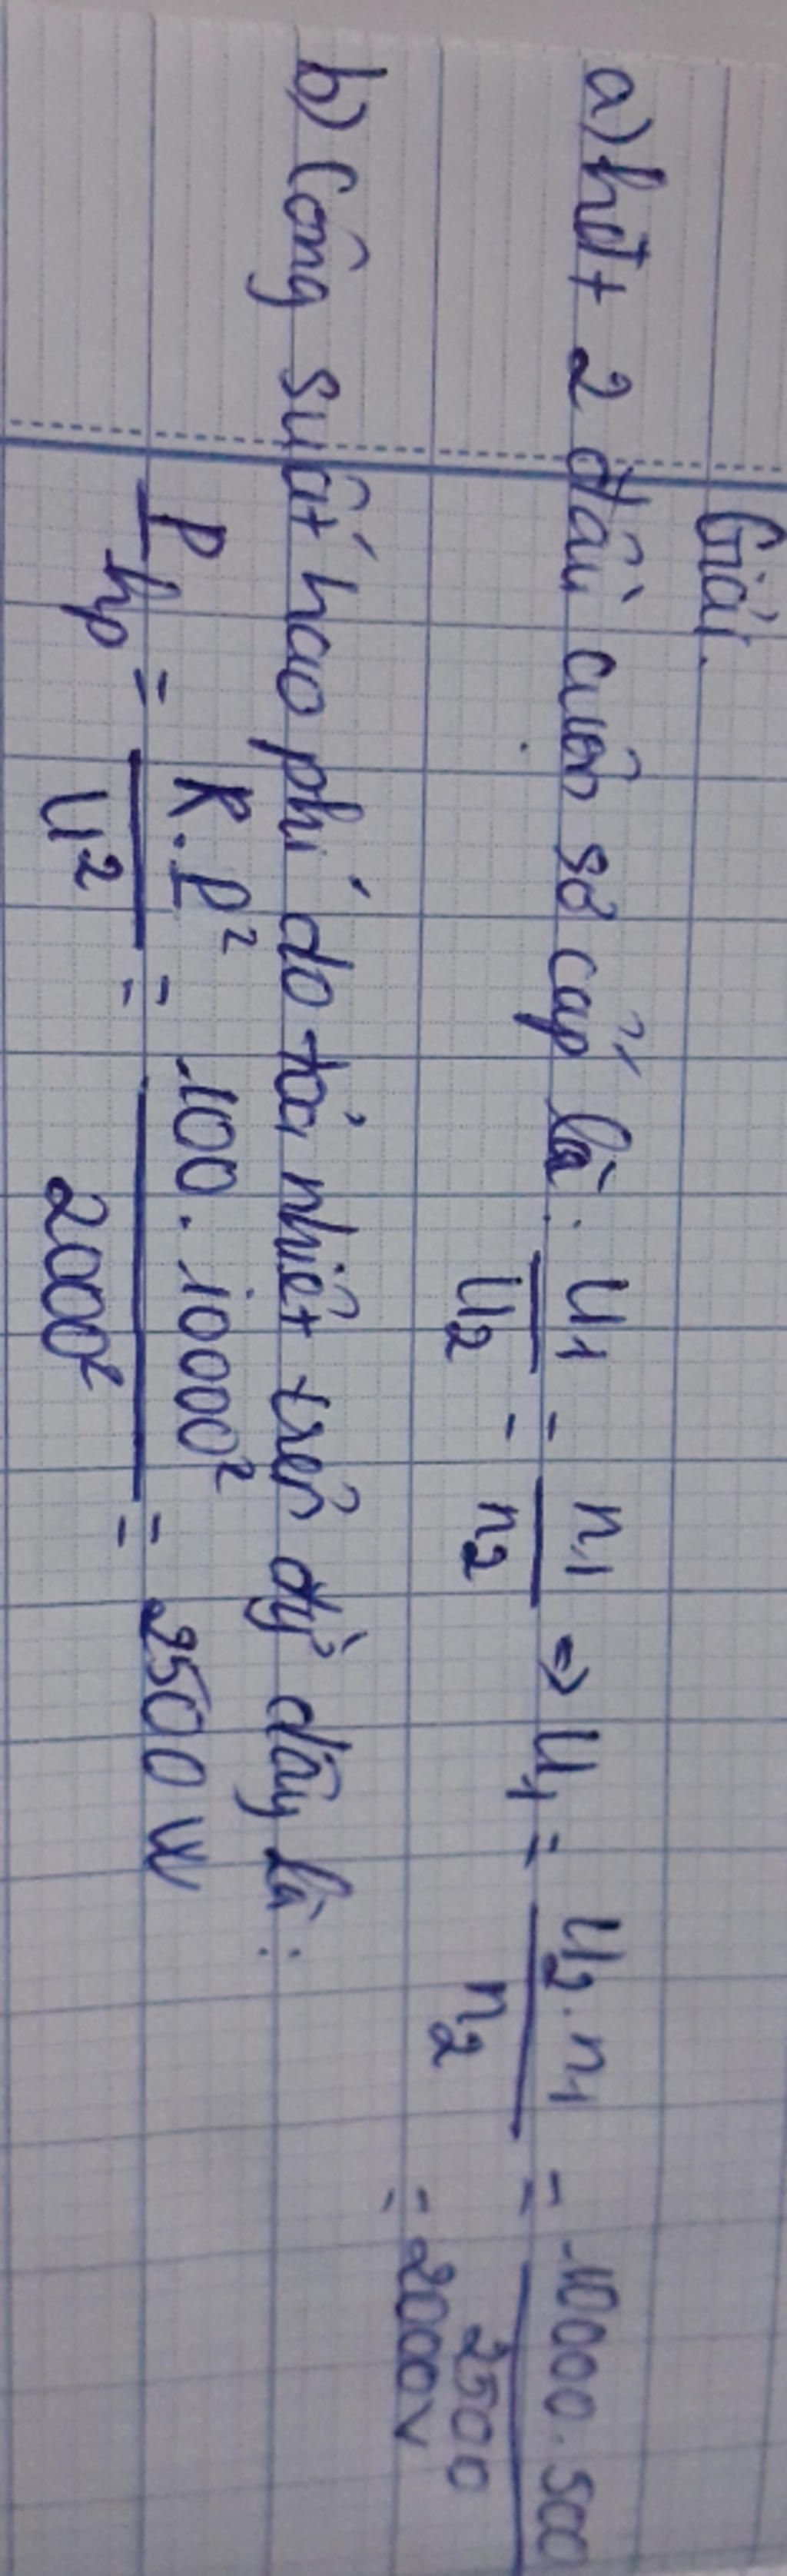 Giải.
a) hđt 2 đầu cuộn sơ cấp là: U1/U2 = n1/n2 => U1 = U2.n1/n2 = 10000.500/2500
= 2000V
b) Công suất hao phí do tỏa nhiệt trên đg dây là:
P hp = R.P²/U² = 100.10000²/2000² = 2500 W